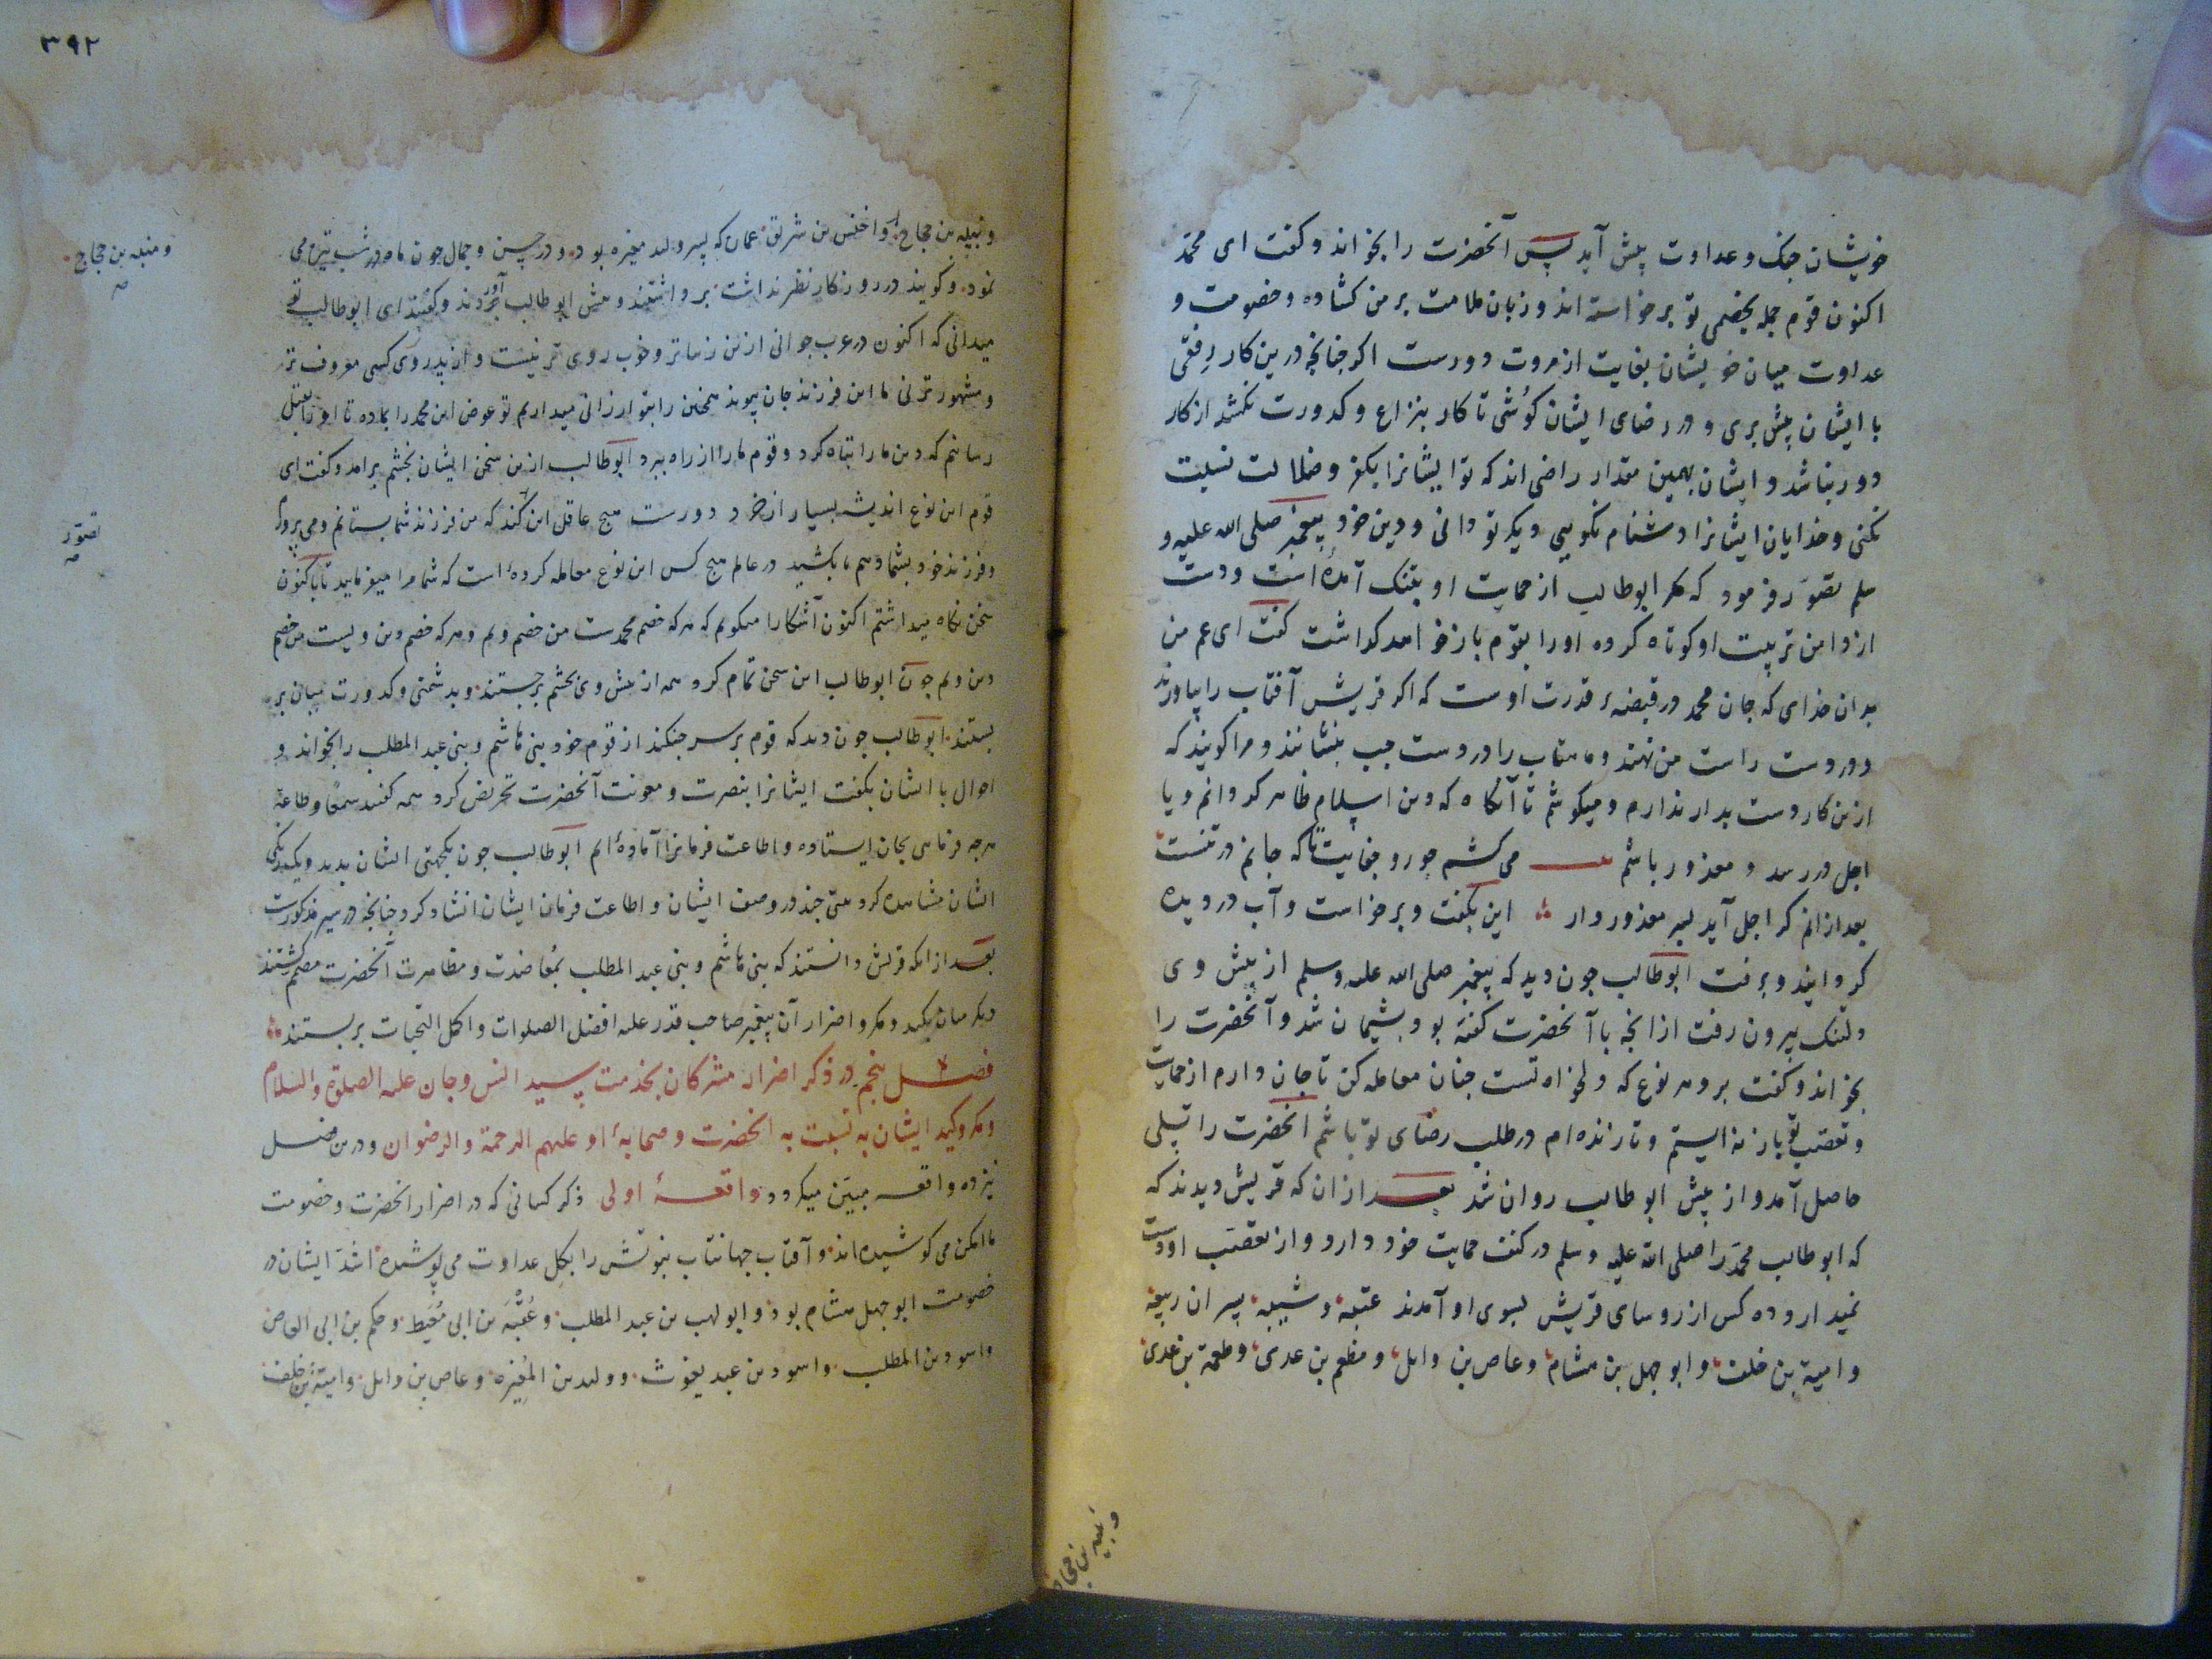 خویشان جنک و عداوت پیش آید پس آنحضرت را بخواند و کفت ای محمد
اکنون قوم جمله بخصمی تو برخواسته اند و زبان ملامت بر من کشاده و خصومت و
عداوت میان خویشان بغایت از مروت دورست اکر چنانچه درین کار رفقی
با ایشان پیش بری و در رضای ایشان کوشی تا کار بنزاع و کدورت نکشد از کار
دور نباشد و ایشان بهمین مقدار راضی اند که تو ایشانرا بکفر و ضلالت نسبت
نکنی و خدایان ایشانرا دشنام نکویی دیکر تو دانی و دین خود پیغمبر صلی الله علیه و
سلم تصور فرمود که مکر ابوطالب از حمایت او بتنک آمده است و دست
از دامن تربیت او کوتاه کرده او را بقوم باز خواهد کذاشت کفت ای عم من
بدان خدای که جان محمد در قبضهٔ قدرت اوست که اکر قریش آفتاب را بیاورند
و در دست راست من نهند و ماهتاب را در دست چپ بنشانند و مرا کویند که
ازین کار دست بدار ندارم و میکوشم تا آنکاه که دین اسلام ظاهر کردانم و یا
اجل در رسد و معذور باشم می کشم جور و جفایت تا که جانم در تنست
بعد ازانم کر اجل آید معذور دار این بکفت و برخواست و آب در دیده
کردانید و برفت ابوطالب چون دید که پیغمبر صلی الله علیه وسلم از پیش وی
دلتنک بیرون رفت ازانچه با آنحضرت کفته بود پشیمان شد و آنحضرت را
بخواند و کفت برو هر نوع که دلخواه تست چنان معامله کن تا جان دارم از حمایت
و تعصب تو باز نه ایستم و تا زنده ام در طلب رضای تو باشم آنحضرت را تسلی
حاصل آمد و از پیش ابوطالب روان شد بعد ازان که قریش دیدند که
که ابوطالب محمد را صلی الله علیه وسلم در کنف حمایت خود دارد و از تعصب او دست
نمیدارد ده کس از روسای قریش بسوی او آمدند عتبه و شیبه پسران ربیعه
و امیة بن خلف و ابو جهل بن هشام و عاص بن وایل و مطعم بن عدی و طعمة بن عدی
و نبیه بن حجاج
۳۹۲
و نبیه بن حجاج و اخنس بن شریق عمان که پسر ولید مغیره بود و در حسن و جمال چون ماه در شب تیره می
و منبه بن حجاج
نمود و کویند در روزکار نظیر نداشت برداشتند و پیش ابوطالب آوردند و کفتند ای ابوطالب تو
میدانی که اکنون در عرب جوانی ازین زیباتر و خوب روی تر نیست و از پدر وی کسی معروف تر
و مشهورتر نی ما این فرزند جان پیوند همچنین را بتو ارزانی میداریم تو عوض این محمد را بما ده تا او را بقتل
رسانیم که دین ما را تباه کرد و قوم ما را از راه ببرد ابوطالب ازین سخن ایشان بخشم برامد و کفت ای
قوم این نوع اندیشه بسیار از خرد دورست هیچ عاقل این کند که من فرزند شما بستانم و می پرورم
تصور
و فرزند خود بشما دهم تا بکشید در عالم هیچ کس این نوع معامله کرده است که شما مرا میفرمایید تا باکنون
سخن نکاه میداشتم اکنون آشکارا میکویم که هر که خصم محمدست من خصم ویم و هر که خصم دین ویست من خصم
دین ویم چون ابوطالب این سخن تمام کرد همه از پیش وی بخشم برجستند و بدشمنی و کدورت میان بر
بستند ابوطالب چون دید که قوم بر سر جنکند از قوم خود بنی هاشم و بنی عبد المطلب را بخواند و
احوال با ایشان بکفت ایشانرا بنصرت و معونت آنحضرت تحریض کرد همه کفتند سمعًا و طاعةً
هرچه فرمایی بجان ایستاده و اطاعت فرمانرا آماده ایم ابوطالب چون یکجهتی ایشان بدید و یکرنکی
ایشان مشاهده کرد بیتی چند در وصف ایشان و اطاعت فرمان ایشان انشاد کرد چنانچه در سیر مذکورست
بعد ازانکه قریش دانستند که بنی هاشم و بنی عبد المطلب بمعاضدت و مظاهرت آنحضرت مصمم کشتند
دیکر میان بکید و مکر و اضرار آن پیغمبر صاحب قدر علیه افضل الصلوات و اکمل التحیات بربستند
فصل پنجم در ذکر اضرار مشرکان بخدمت سید انس و جان علیه الصلوة والسلام
و مکر و کید ایشان به نسبت به آنحضرت و صحابهٔ او علیهم الرحمة والرضوان و درین فصل
نزده واقعه مبین میکردد واقعهٔ اولی ذکر کسانی که در اضرار آنحضرت و خصومت
ما امکن می کوشیده اند و آفتاب جهانتاب نبوتش را بکل عداوت می پوشیده اشد ایشان در
خصومت ابو جهل هشام بود و ابو لهب بن عبد المطلب و عقبه بن ابی معیط و حکم بن ابی العاص
و اسود بن المطلب و اسود بن عبد یغوث و ولید بن المغیره و عاص بن وایل و امیة بن خلف